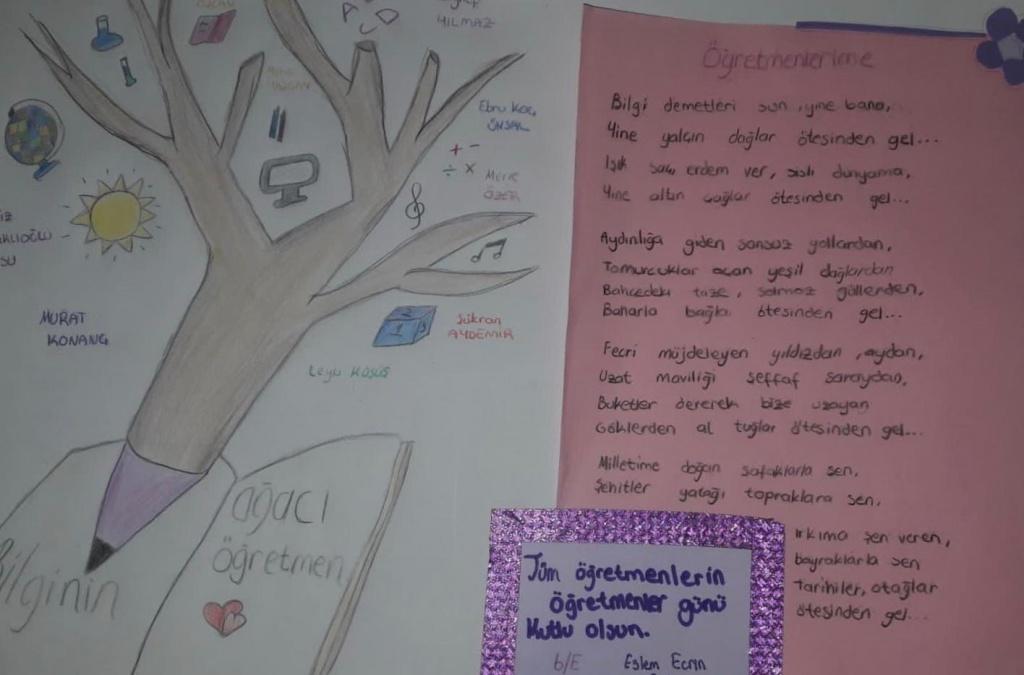 YILMAZ
Ebru Koç
ÜNSAL
+ -
÷ x
ÖZER
MURAT
KONANG
Şükran
AYDEMİR
Bilginin
ağacı
öğretmen
Öğretmenlerime
Bilgi demetleri sun, yine bana,
Yine yalçın dağlar ötesinden gel...
Işık saç erdem ver, sisli dünyama,
Yine altın çağlar ötesinden gel...
Aydınlığa giden sonsuz yollardan,
Tomurcuklar açan yeşil dağlardan
Bahçedeki taze, solmaz güllerden,
Baharla bağla ötesinden gel...
Fecri müjdeleyen yıldızdan, aydan,
Uzat maviliği şeffaf saraydan,
Buketler dererek bize uzayan
Göklerden al tuğlar ötesinden gel...
Milletime doğan şafaklarla sen,
Şehitler yatağı topraklara sen,
ırkıma şen veren,
bayraklarla sen
Tarihiler, otağlar
ötesinden gel...
Tüm öğretmenlerin
öğretmenler günü
kutlu olsun.
6/E Eslem Ecrin